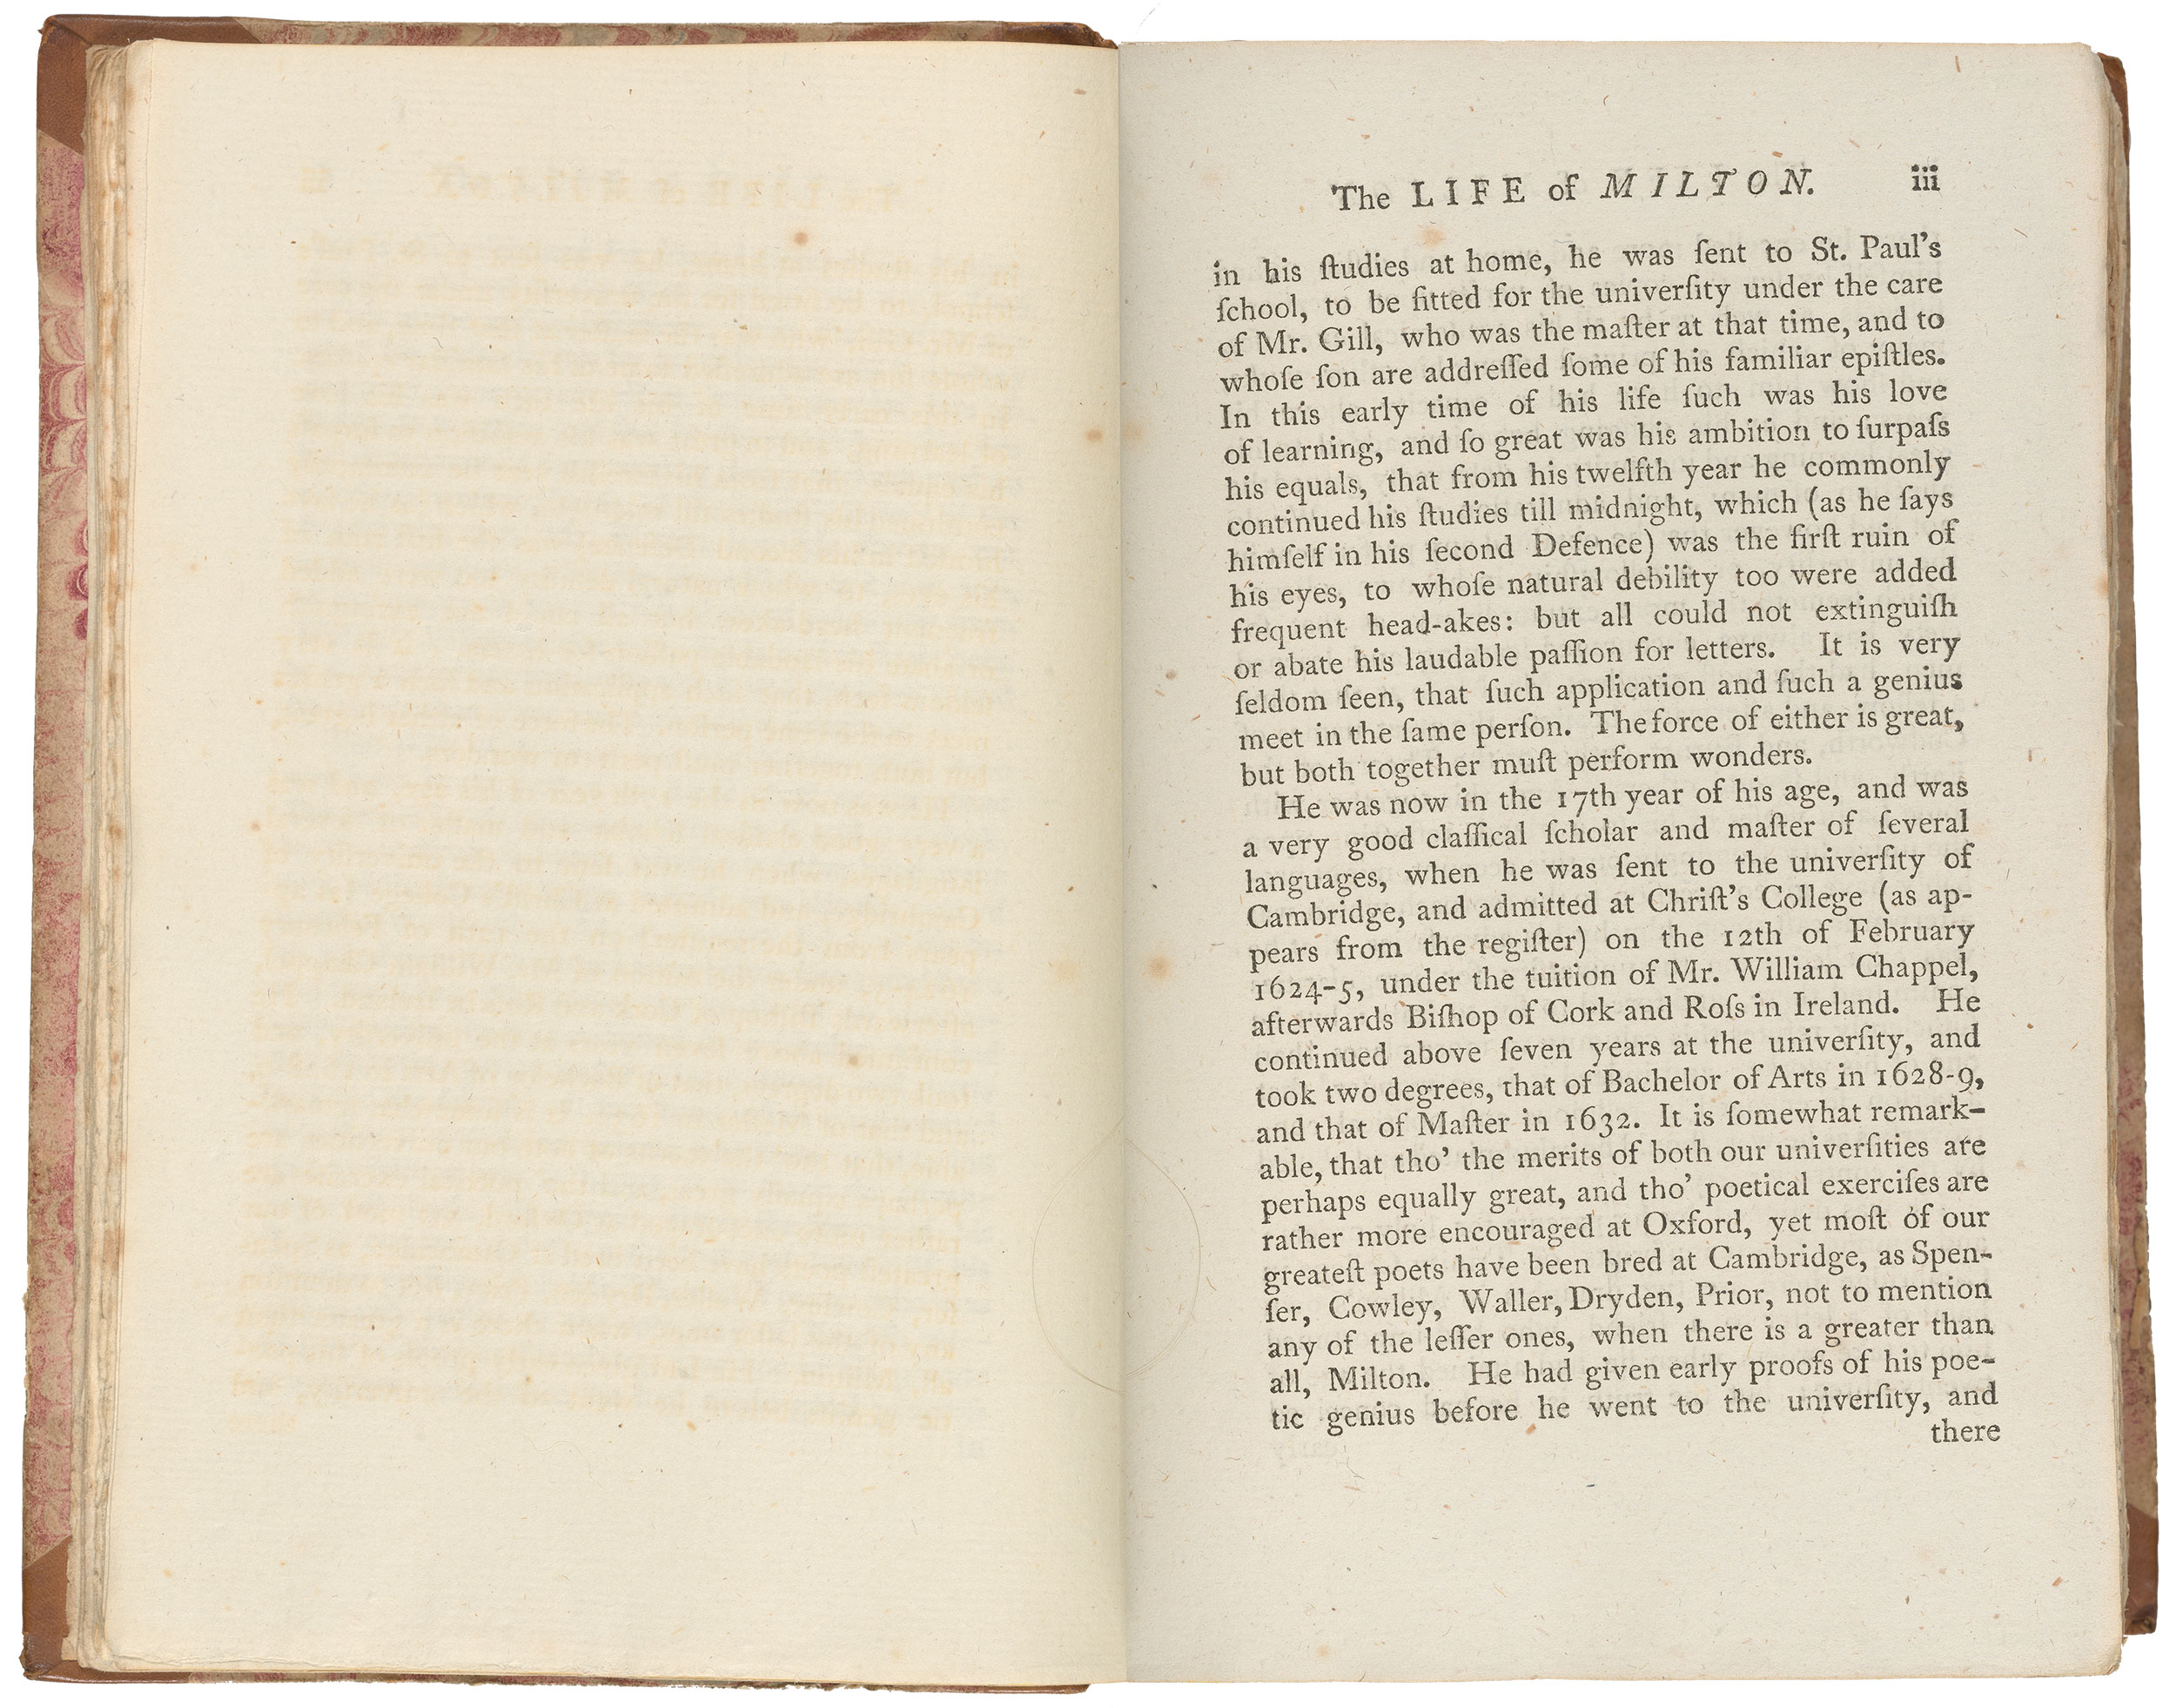 The LIFE of MILTON. iii
in his ſtudies at home, he was ſent to St. Paul's
ſchool, to be fitted for the univerſity under the care
of Mr. Gill, who was the maſter at that time, and to
whoſe ſon are addreſſed ſome of his familiar epiſtles.
In this early time of his life ſuch was his love
of learning, and ſo great was his ambition to ſurpaſs
his equals, that from his twelfth year he commonly
continued his ſtudies till midnight, which (as he ſays
himſelf in his ſecond Defence) was the firſt ruin of
his eyes, to whoſe natural debility too were added
frequent head-akes: but all could not extinguiſh
or abate his laudable paſſion for letters. It is very
ſeldom ſeen, that ſuch application and ſuch a genius
meet in the ſame perſon. The force of either is great,
but both together muſt perform wonders.
He was now in the 17th year of his age, and was
a very good claſſical ſcholar and maſter of ſeveral
languages, when he was ſent to the univerſity of
Cambridge, and admitted at Chriſt's College (as ap-
pears from the regiſter) on the 12th of February
1624-5, under the tuition of Mr. William Chappel,
afterwards Biſhop of Cork and Roſs in Ireland. He
continued above ſeven years at the univerſity, and
took two degrees, that of Bachelor of Arts in 1628-9,
and that of Maſter in 1632. It is ſomewhat remark-
able, that tho' the merits of both our univerſities are
perhaps equally great, and tho' poetical exerciſes are
rather more encouraged at Oxford, yet moſt of our
greateſt poets have been bred at Cambridge, as Spen-
ſer, Cowley, Waller, Dryden, Prior, not to mention
any of the leſſer ones, when there is a greater than
all, Milton. He had given early proofs of his poe-
tic genius before he went to the univerſity, and
there